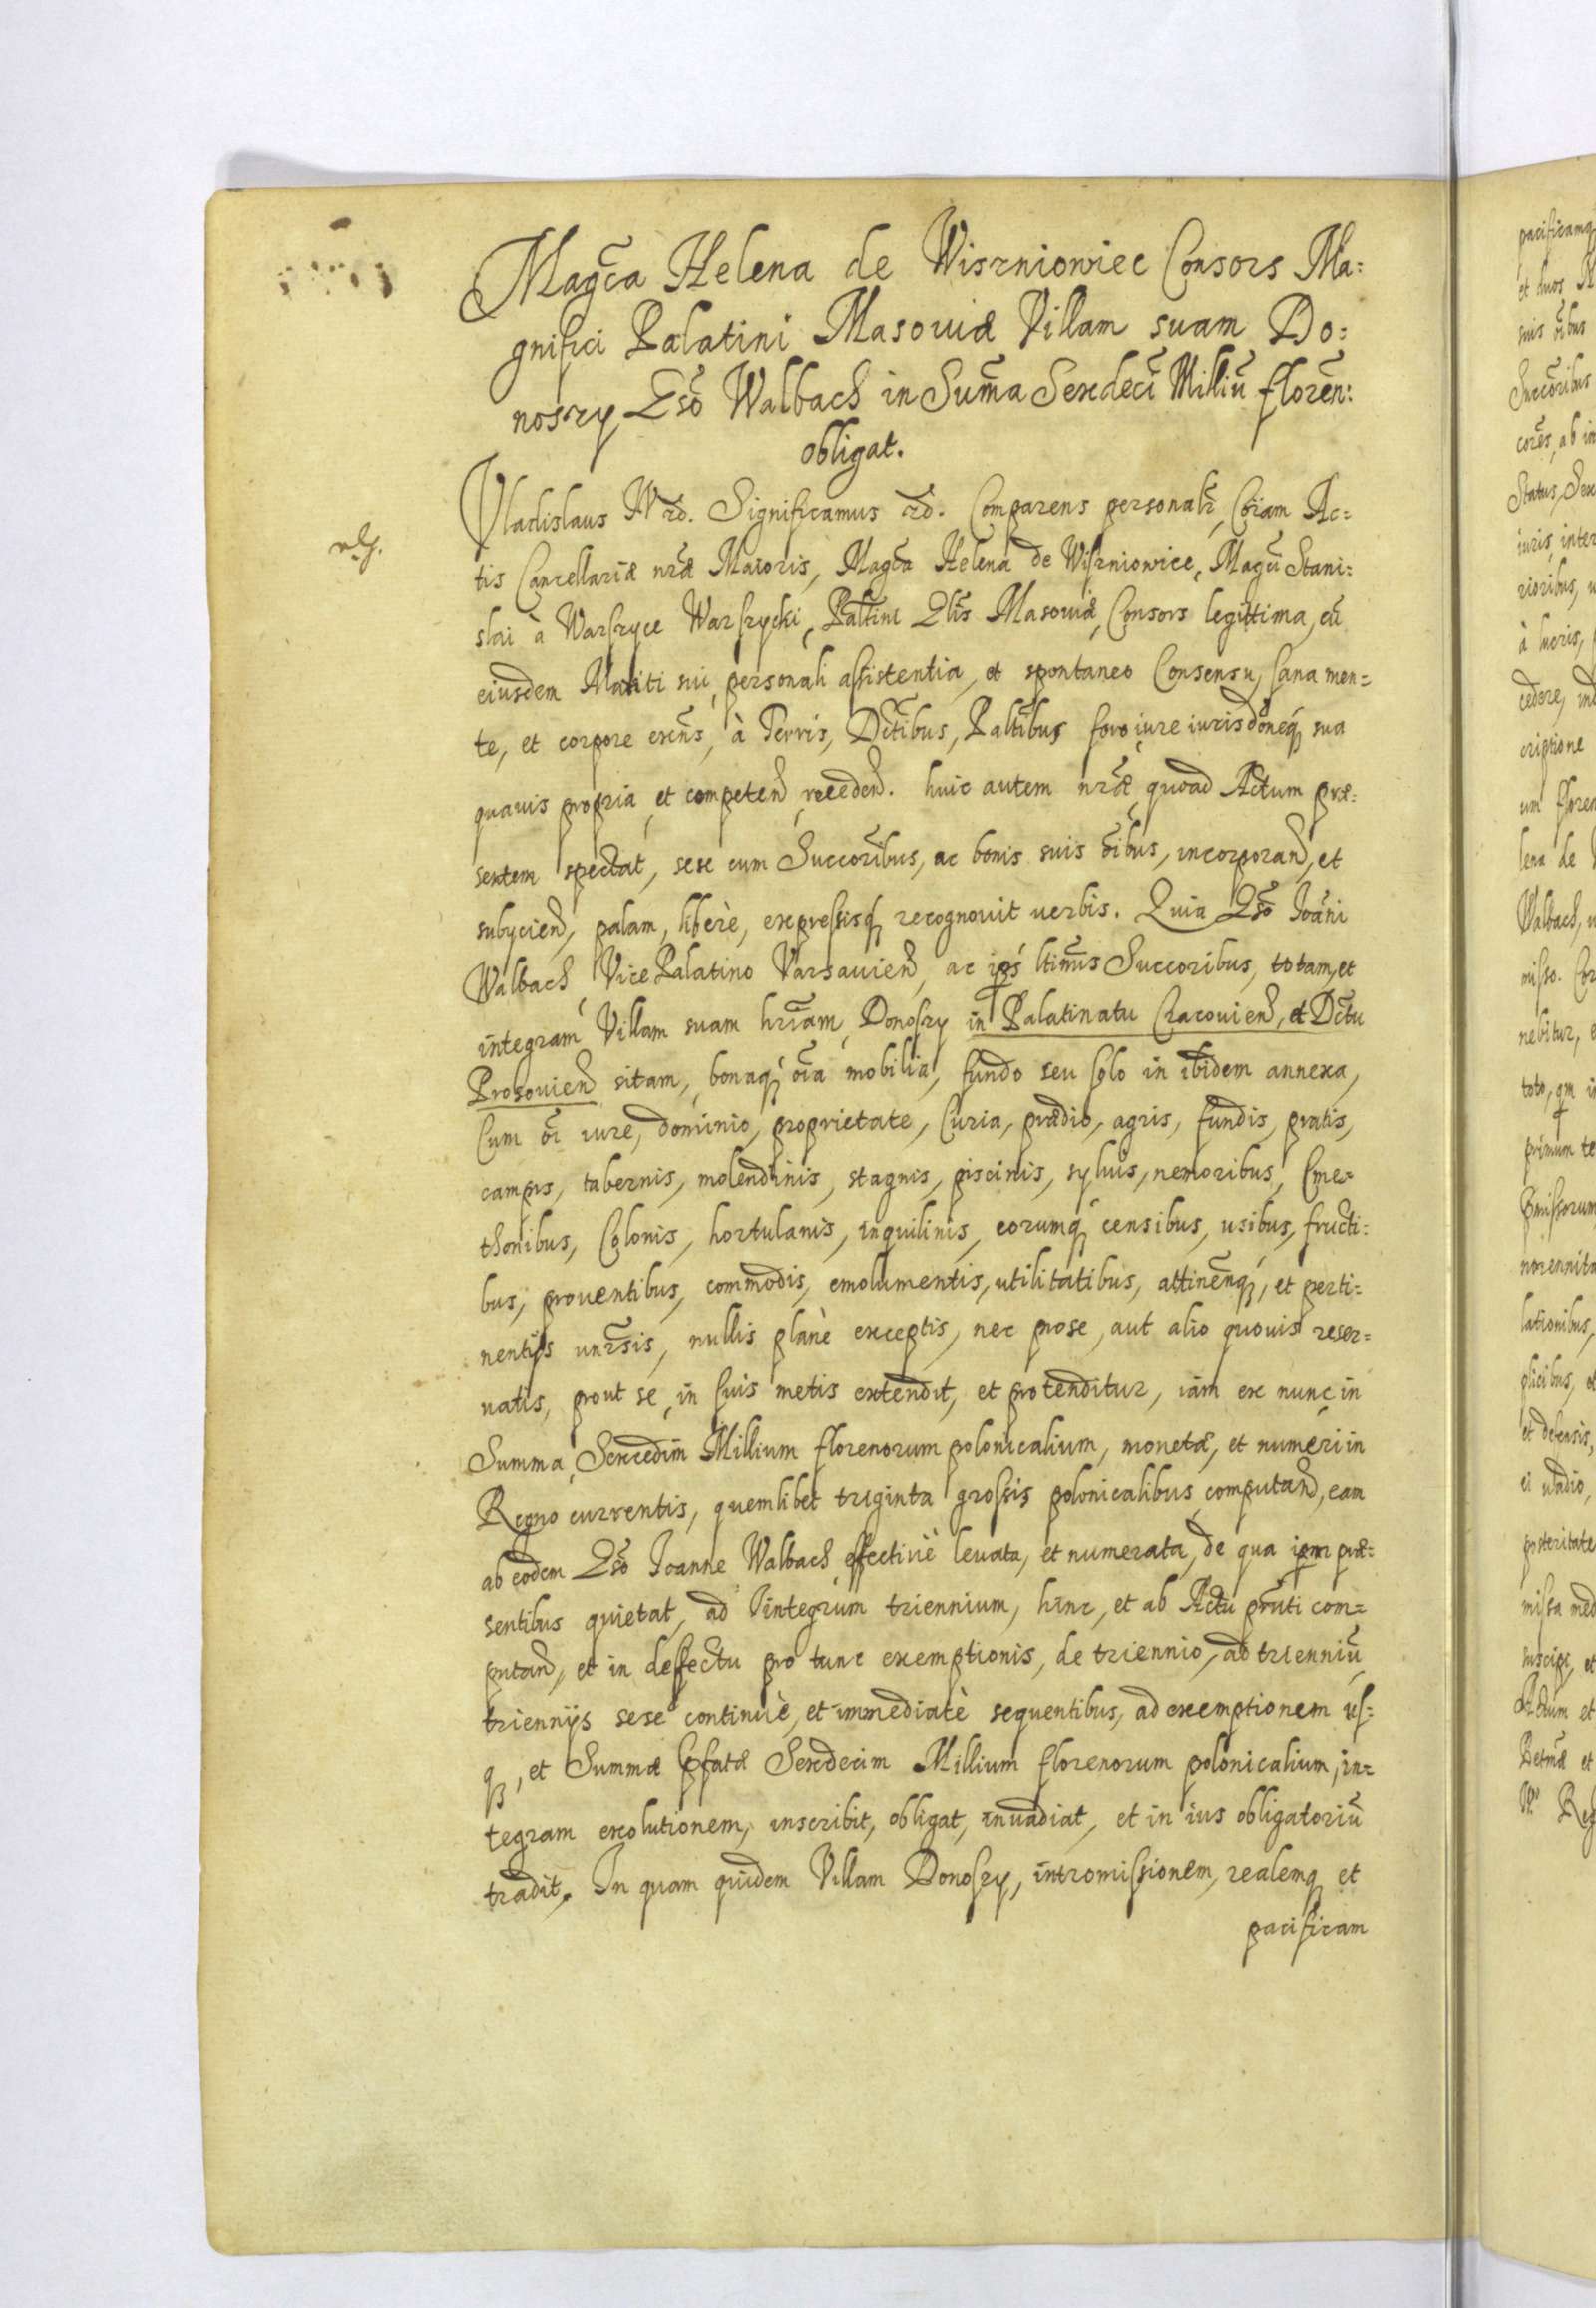 Magca Helena de Wiszniowiec Consors Ma:
gnifici Palatini Masoviæ Villam suam Do:
noszy Gso Walbach in Suma Sexdeci Milliu floren:
obligat.
Vladislaus IV etc. Significamus etc. Comparens personalr Coram Ac:
tis Cancellariæ nræ Maioris, Magca Helena de Wiszniowice, Magci Stani:
slai à Warszyce Warszycki, Paltini Glis Masoviæ, Consors legittima, cu
eiusdem Mariti sui personali assistentia, et spontaneo Consensu, sana men=
te, et corpore exens, à Terris, Dctibus, Paltibus foro iure iurisdoneq sua
quavis propria et competen recedен. huic autem nræ quoad Actum præ:
sentem spectat, sese cum Succoribus, ac bonis suis oibus, incorporan, et
subycien, palam, liberè, expressisq recognovit verbis. Quia Gso Joani
Walbach Vice Palatino Varsavien, ac ips ltimis Succoribus, totam, et
integram Villam suam hriam Donoszy in Palatinatu Cracovien, et Dctu
Prosovien sitam, bonaq oia mobilia, fundo seu solo in ibidem annexa,
Cum oi iure, dominio, proprietate, Curia, prædio, agris, fundis, pratis,
campis, tabernis, molendinis, stagnis, piscinis, sylvis, nemoribus, Cme=
thonibus, Colonis, hortulanis, inquilinis, eorumq censibus, usibus, fructi:
bus, proventibus, commodis, emolumentis, utilitatibus, attinenq, et perti:
nentijs unrsis, nullis planè exceptis, nec prose, aut alio quovis reser=
vatis, prout se in suis metis extendit, et protenditur, iam ex nunc in
Summa Sexcedim Millium florenorum polonicalium, monetæ, et numeri in
Regno currentis, quemlibet triginta grossis polonicalibus computan, eam
ab eodem Gso Joanne Walbach effectivè levata, et numerata, de qua ipm præ:
sentibus quietat, ad integrum triennium, hinc, et ab Actu prnti com=
putan, et in deffectu pro tunc exemptionis, de triennio, ad trienniu
triennijs sese continuè, et immediatè sequentibus, ad exemptionem us:
q, et Summæ pfatæ Sexdecim Millium florenorum polonicalium, in=
tegram exolutionem, inscribit, obligat, invadiat, et in ius obligatoriu
tradit. In quam quidem Villam Donoszy, intromissionem, realemq et
pacificam